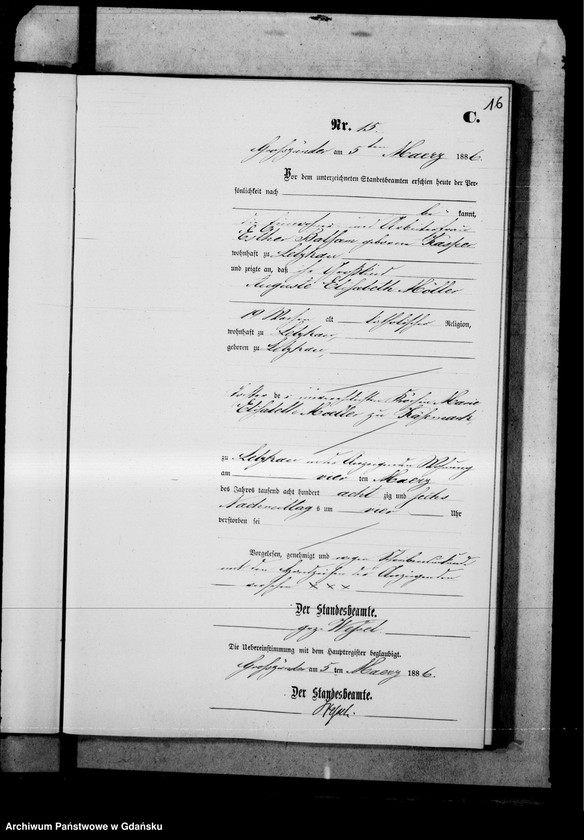 16
C.
Nr. 15.
Großzünder am 5ten Maerz 1886.
Vor dem unterzeichneten Standesbeamten erschien heute der Per-
sönlichkeit nach
be kannt,
die Einwohner und Arbeiterfrau
Esther geborene Käsper
wohnhaft zu Letzkau
und zeigte an, daß ihr Großkind
Auguste Elisabeth Möller
19 Wochen alt katholischer Religion,
wohnhaft zu Letzkau,
geboren zu Letzkau,
Tochter der unverehelichten Köchin Marie
Elisabeth Moeller zu Käsemark
zu Letzkau in der Wohnung
am vier ten Maerz
des Jahres tausend acht hundert acht zig und sechs
Nachmittag s um vier Uhr
verstorben sei
Vorgelesen, genehmigt und wegen Schreibensunkunde
mit dem Handzeichen der Anzeigenden
versehen XXX
Der Standesbeamte.
gez. Wessel
Die Uebereinstimmung mit dem Hauptregister beglaubigt.
Großzünder am 5 ten Maerz 1886.
Der Standesbeamte.
Wessel.
Archiwum Państwowe w Gdańsku